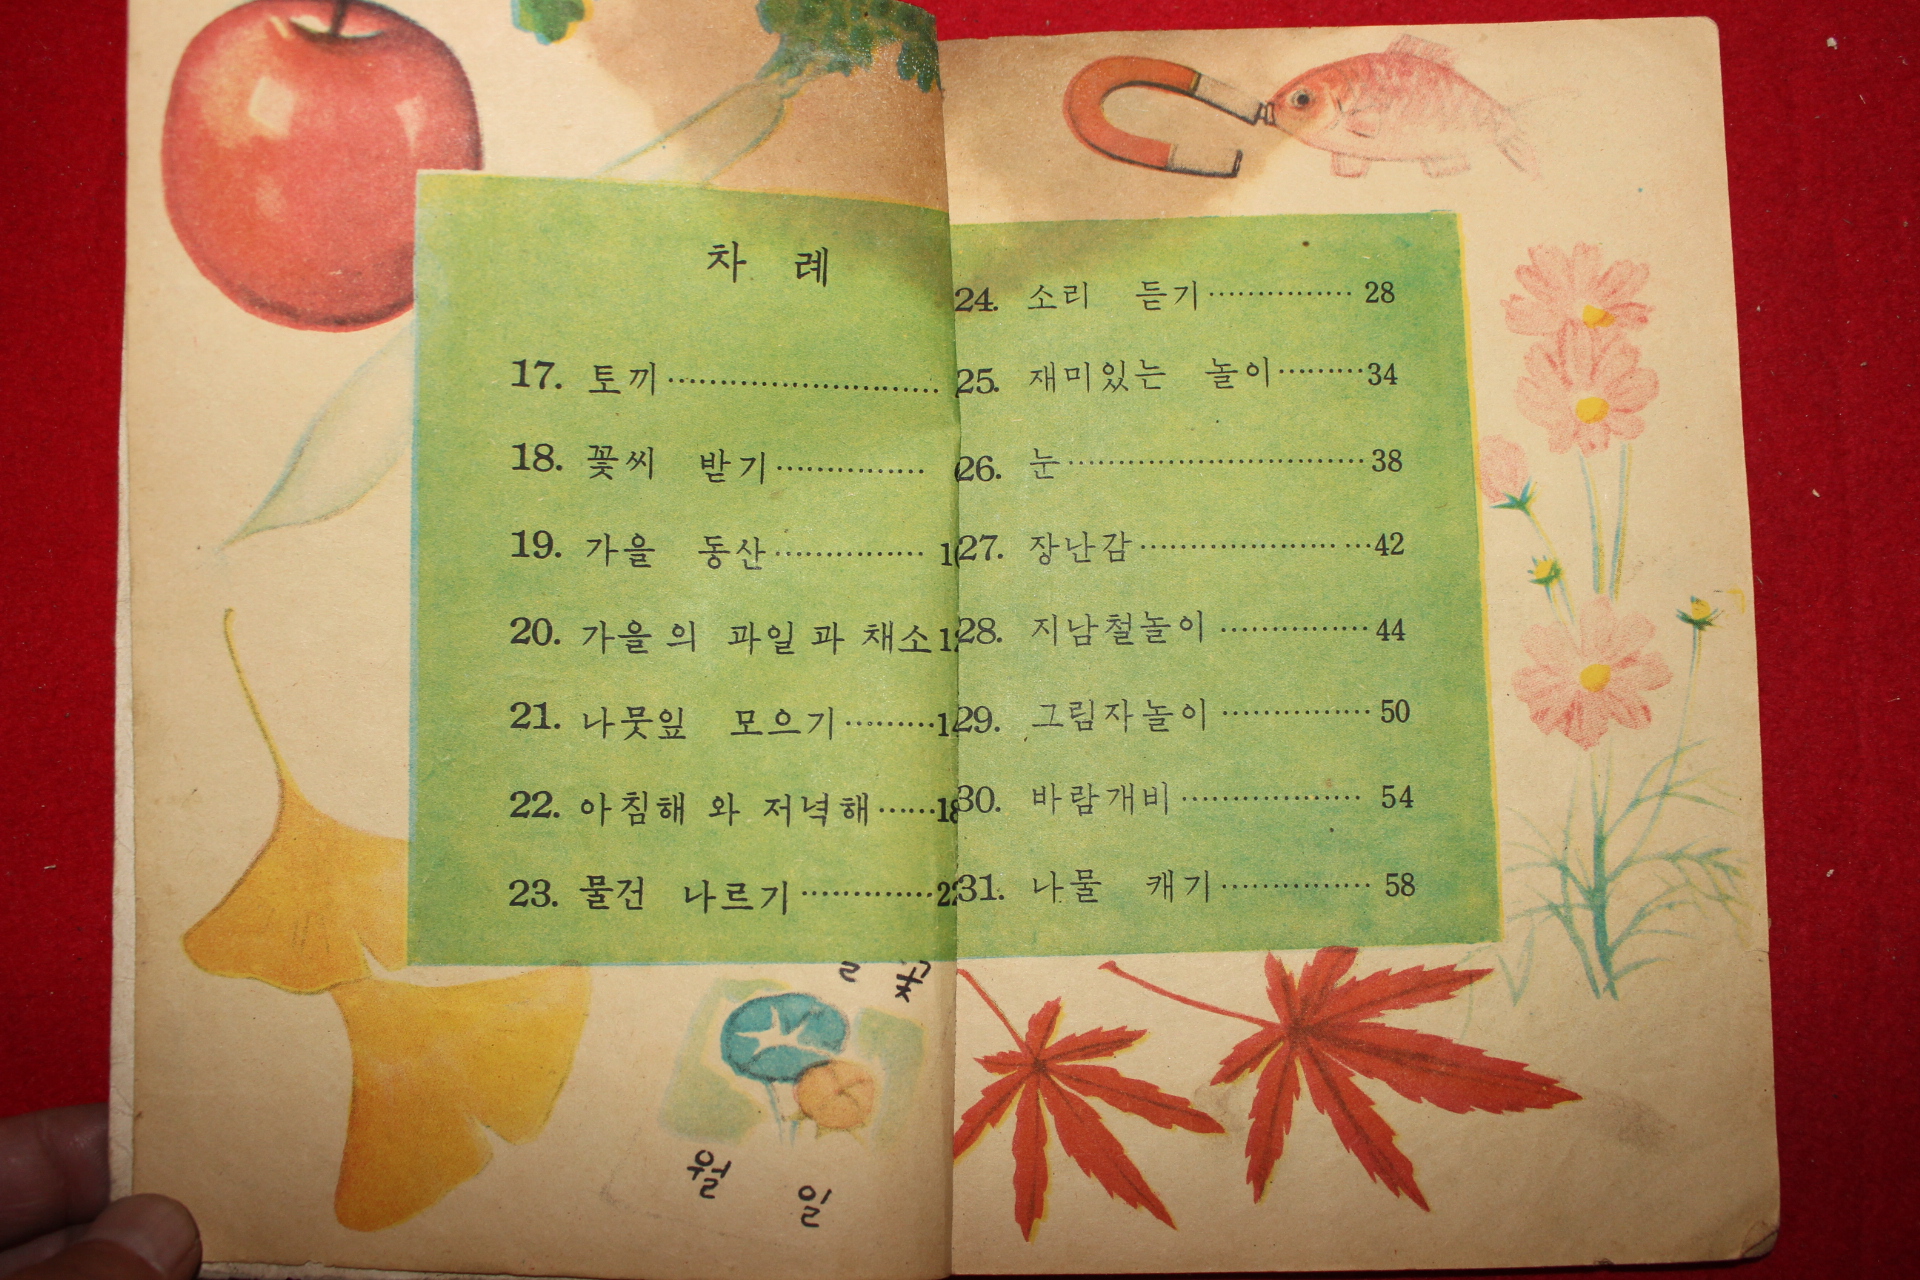 차 례
17. 토끼 ……………………
18. 꽃씨 받기 ……………
19. 가을 동산 ……………
20. 가을의 과일과 채소
21. 나뭇잎 모으기 ………
22. 아침해 와 저녁해 …… 18
23. 물건 나르기 ………… 22
24. 소리 듣기 …………… 28
25. 재미있는 놀이 ……… 34
26. 눈 ………………………… 38
27. 장난감 ………………… 42
28. 지남철놀이 …………… 44
29. 그림자놀이 …………… 50
30. 바람개비 ……………… 54
31. 나물 캐기 …………… 58
월 일